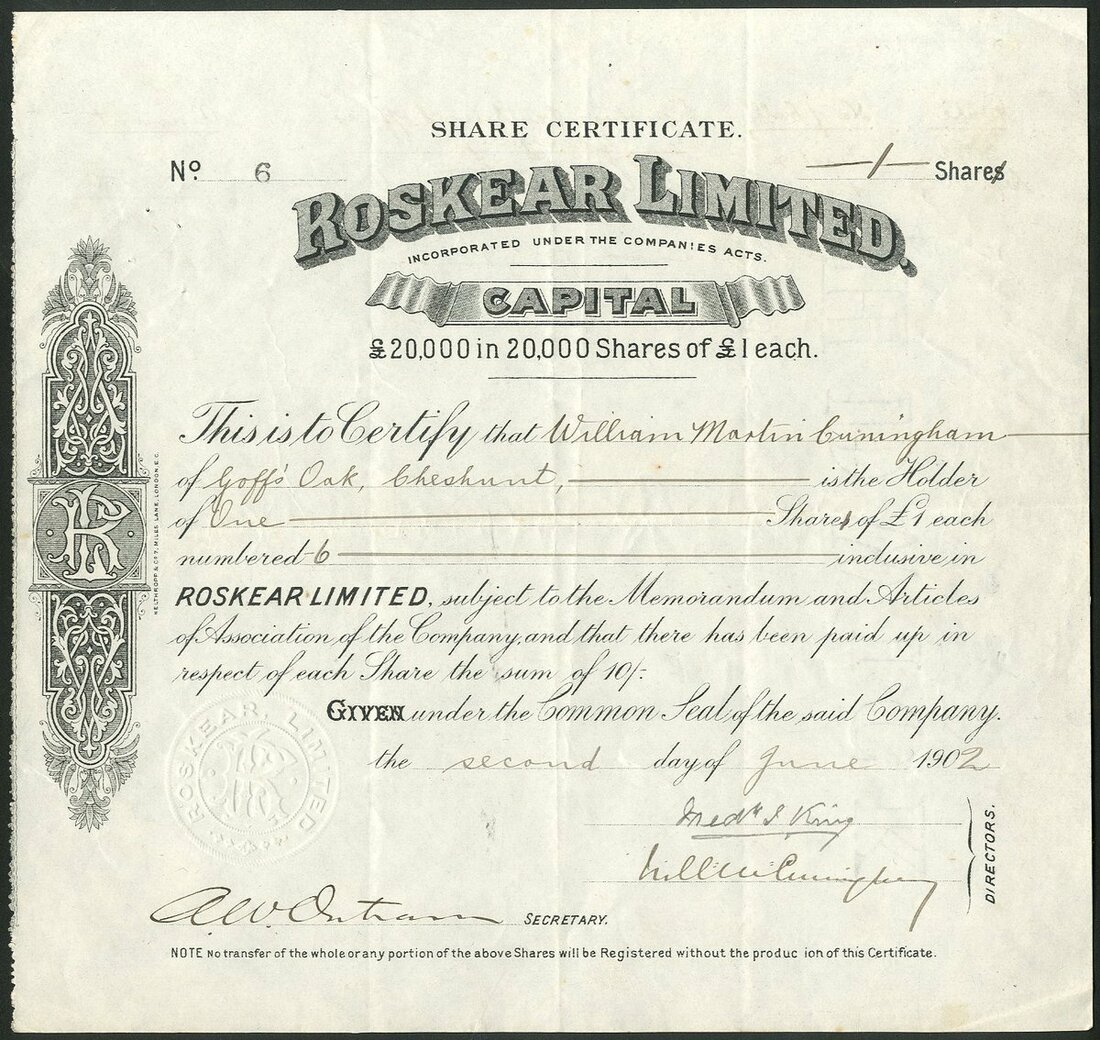 SHARE CERTIFICATE.
No. 6 1 Shares
ROSKEAR LIMITED.
INCORPORATED UNDER THE COMPANIES ACTS.
CAPITAL
£20,000 in 20,000 Shares of £1 each.
This is to Certify that William Martin Cuningham
of Goff's Oak, Cheshunt, is the Holder
of One Shares of £1 each
numbered 6 inclusive in
ROSKEAR LIMITED, subject to the Memorandum and Articles
of Association of the Company, and that there has been paid up in
respect of each Share the sum of 10/-
GIVEN under the Common Seal of the said Company.
the second day of June 1902
Fredk J King
Will M Cuningham
DIRECTORS.
A W Outram SECRETARY.
NOTE No transfer of the whole or any portion of the above Shares will be Registered without the produc ion of this Certificate.
ROSKEAR, LIMITED
R L